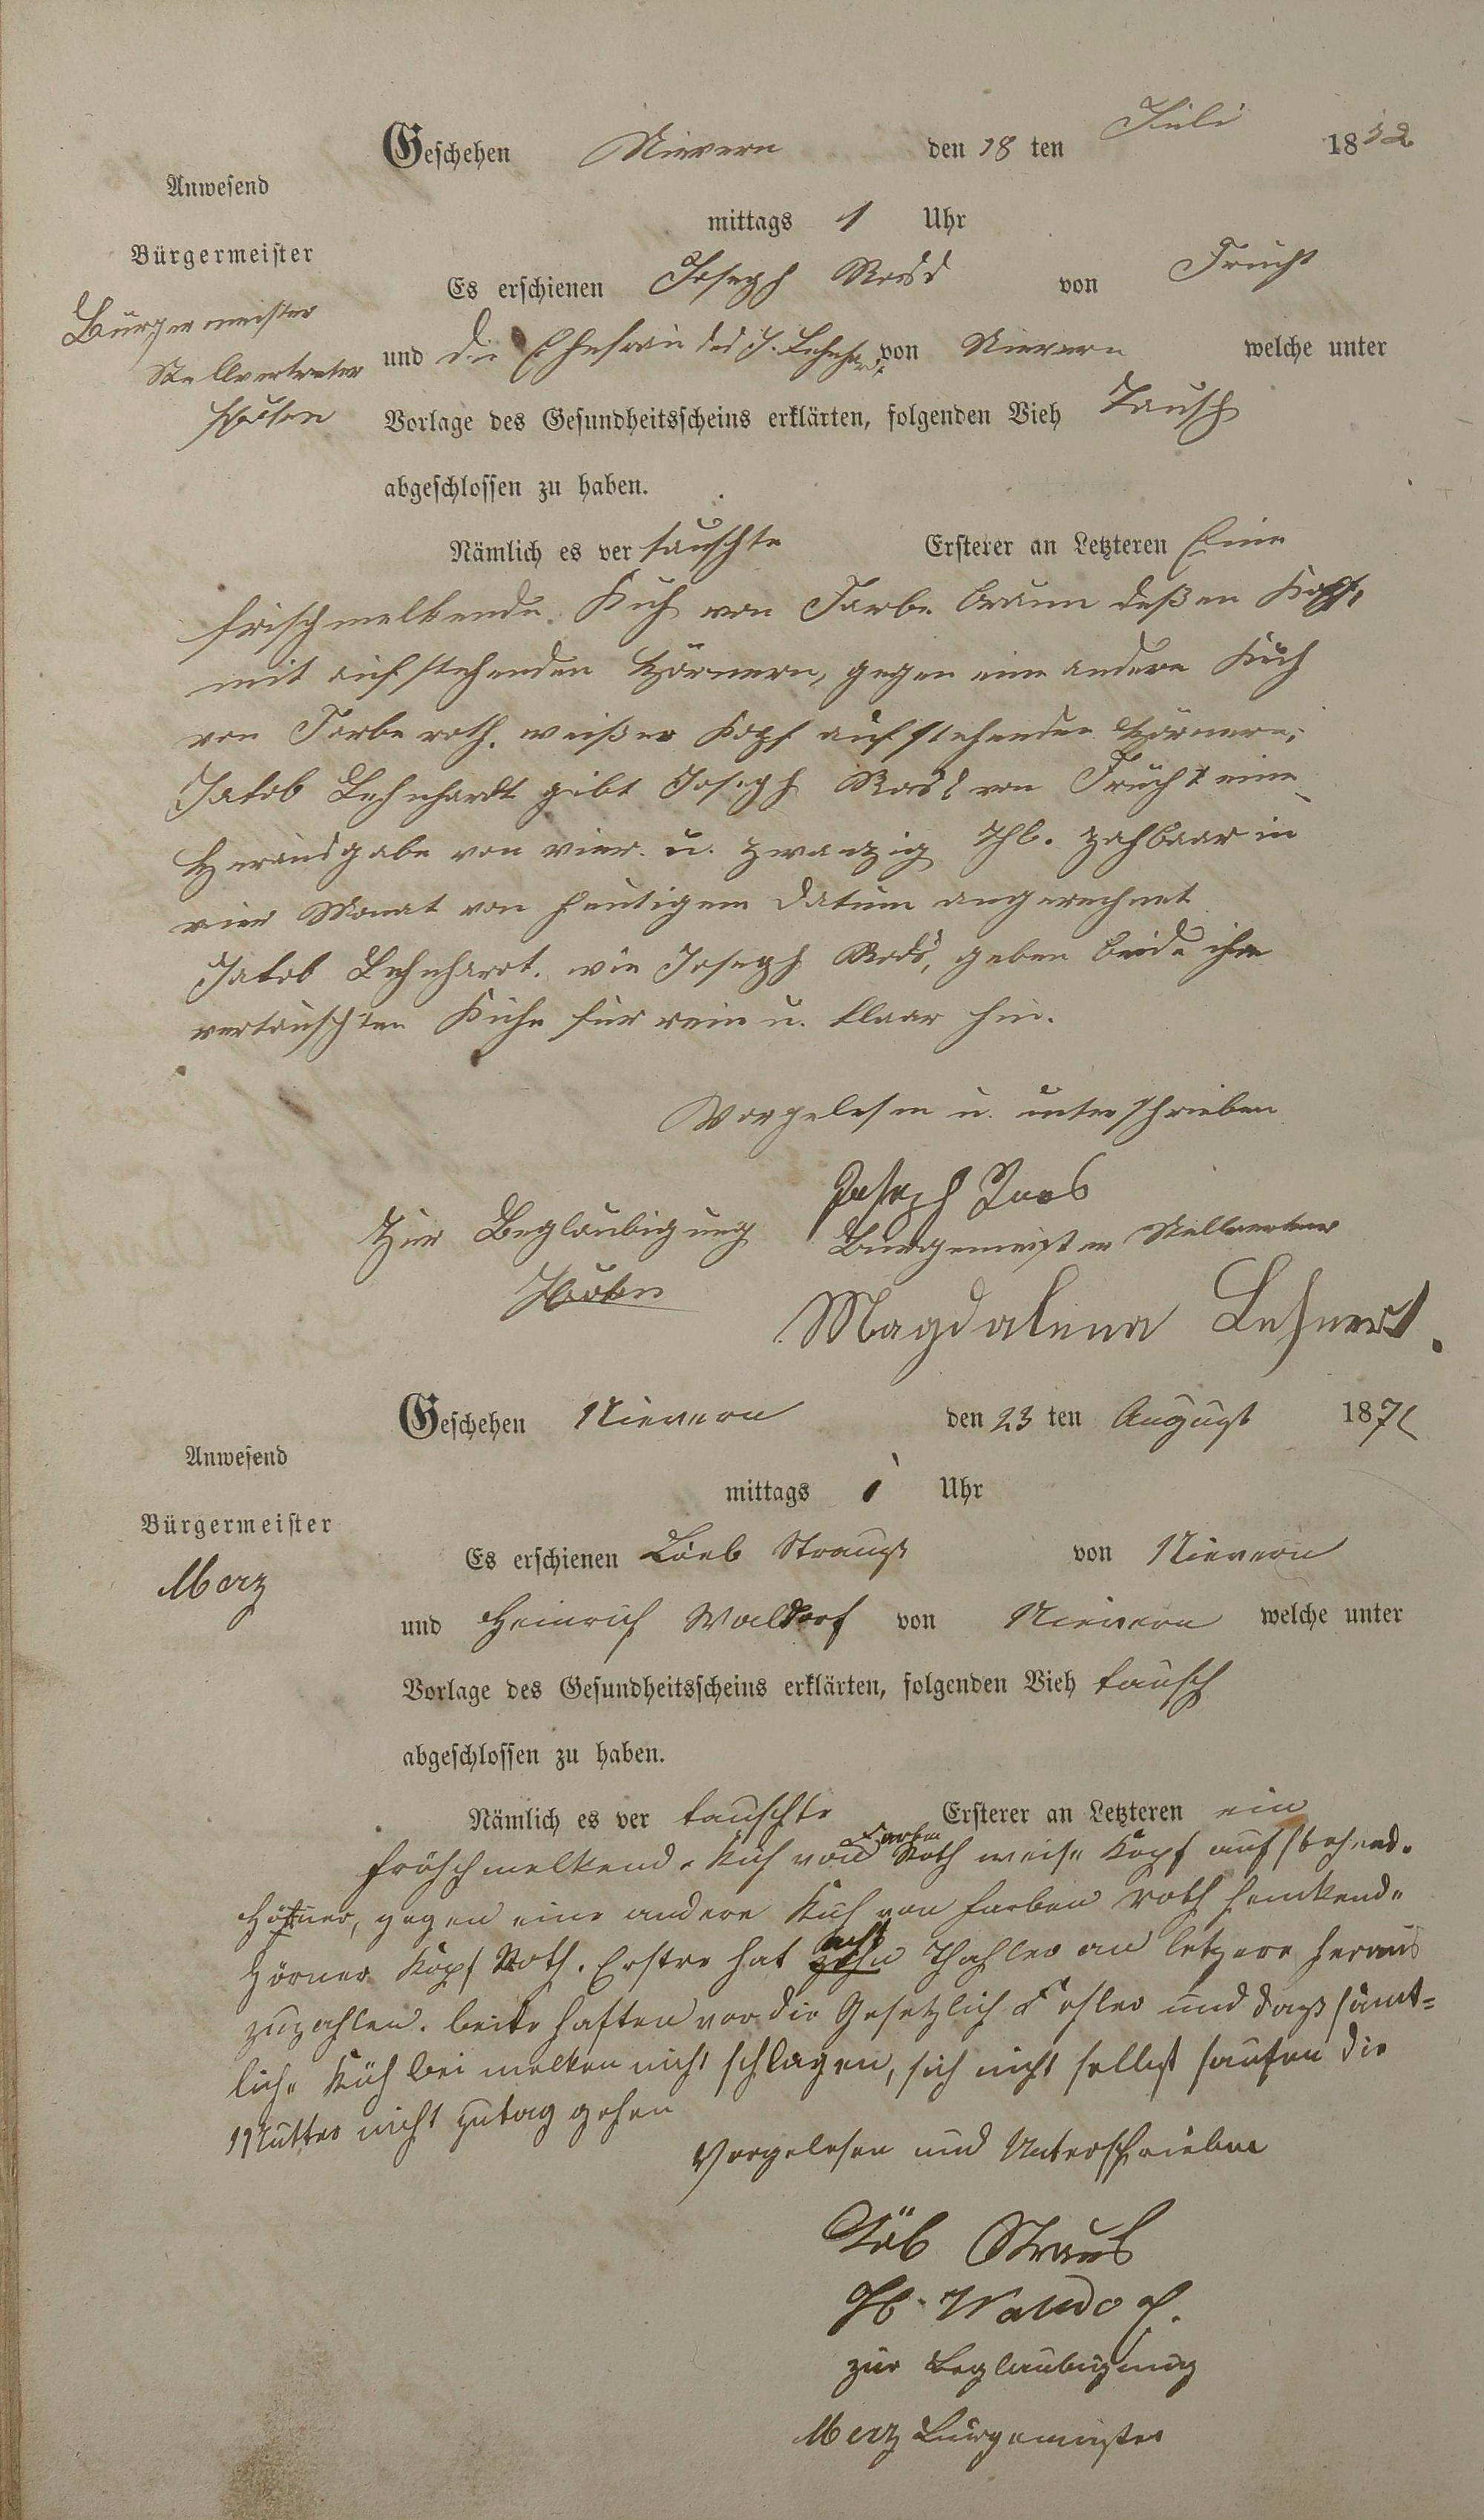 Geschehen Nievern den 18 ten Juli 18
Anwesend
mittags 1 Uhr
Bürgermeister
Es erschienen Joseph von Frücht
Bürgermeister
Stellvertreter
und die Ehefrau des J. Lehnhardt von Nievern welche unter
Vorlage des Gesundheitsscheins erklärten, folgenden Vieh Tausch
abgeschlossen zu haben.
Nämlich es ver tauschte Ersterer an Letzteren Eine
frischmelkende Kuh von Farbe braun deßen Kopf,
mit aufstehenden Hörnern, gegen eine andere Kuh
von Farbe roth. weißer Kopf aufstehenden Hörnern;
Jakob Lehnhardt gibt Joseph von Frücht eine
Herausgabe von vier u. zwanzig Thl. zahlbaar in
vier Monat von heutigem Datum angerechnet
Jakob Lehnhardt. wie Joseph geben beide ihre
vertauschten Kühe für rein u. klaar hin.
Vorgelesen u. unterschrieben
Joseph
Zur Beglaubigung Burgemeister Stellvertreter
Magdalena Lehnert.
Geschehen Nievern den 23 ten August 1871
Anwesend
mittags 1 Uhr
Bürgermeister
Es erschienen Löeb Strauß von Nievern
Merz
und Heinrich Waldorf von Nievern welche unter
Vorlage des Gesundheitsscheins erklärten, folgenden Vieh tausch
abgeschlossen zu haben.
Nämlich es ver tauschte Ersterer an Letzteren ein
fröschmelkende Kuh von Farben Roth weise Kopf aufstehende
Hörner, gegen eine andere Kuh von farben roth henkende
Hörner Kopf Roth. Erstre hat zehn acht Thahler an letzere heraus
zuzahlen. beite haften vor die Gesetzlich Fehler und daß sämt-
liche Küh bei melken nicht schlagen, sich nicht selbst saufen die
Mutter nicht zutag gehen
Vorgelesen und Unterschrieben
Löb Straus
H. Waldorf.
zur Beglaubigung
Merz Bürgemeister